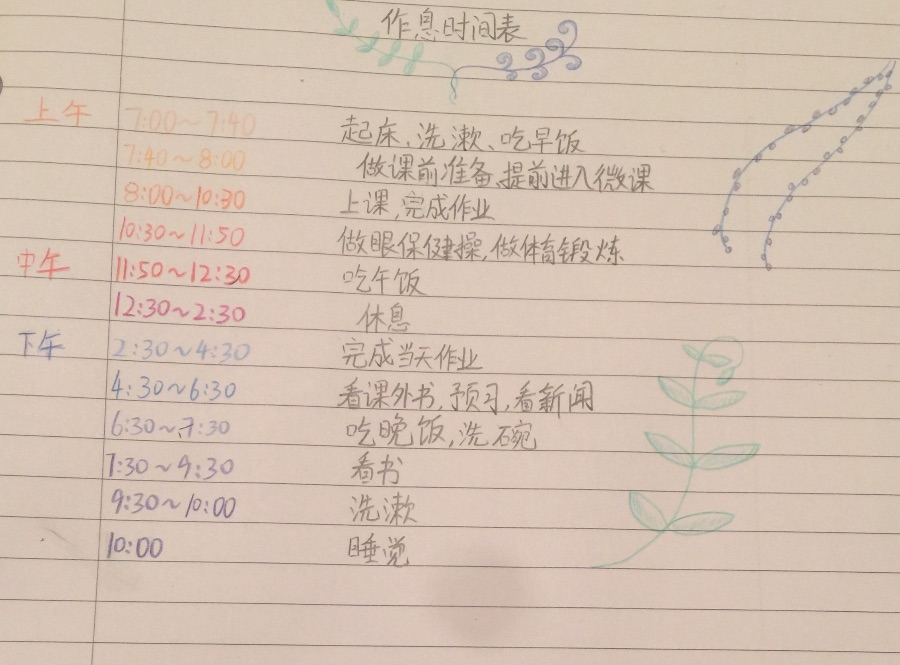 作息时间表
上午 7:00~7:40 起床、洗漱、吃早饭
7:40~8:00 做课前准备,提前进入微课
8:00~10:30 上课,完成作业
10:30~11:50 做眼保健操,做体育锻炼
中午 11:50~12:30 吃午饭
12:30~2:30 休息
下午 2:30~4:30 完成当天作业
4:30~6:30 看课外书,预习,看新闻
6:30~7:30 吃晚饭,洗碗
7:30~9:30 看书
9:30~10:00 洗漱
10:00 睡觉